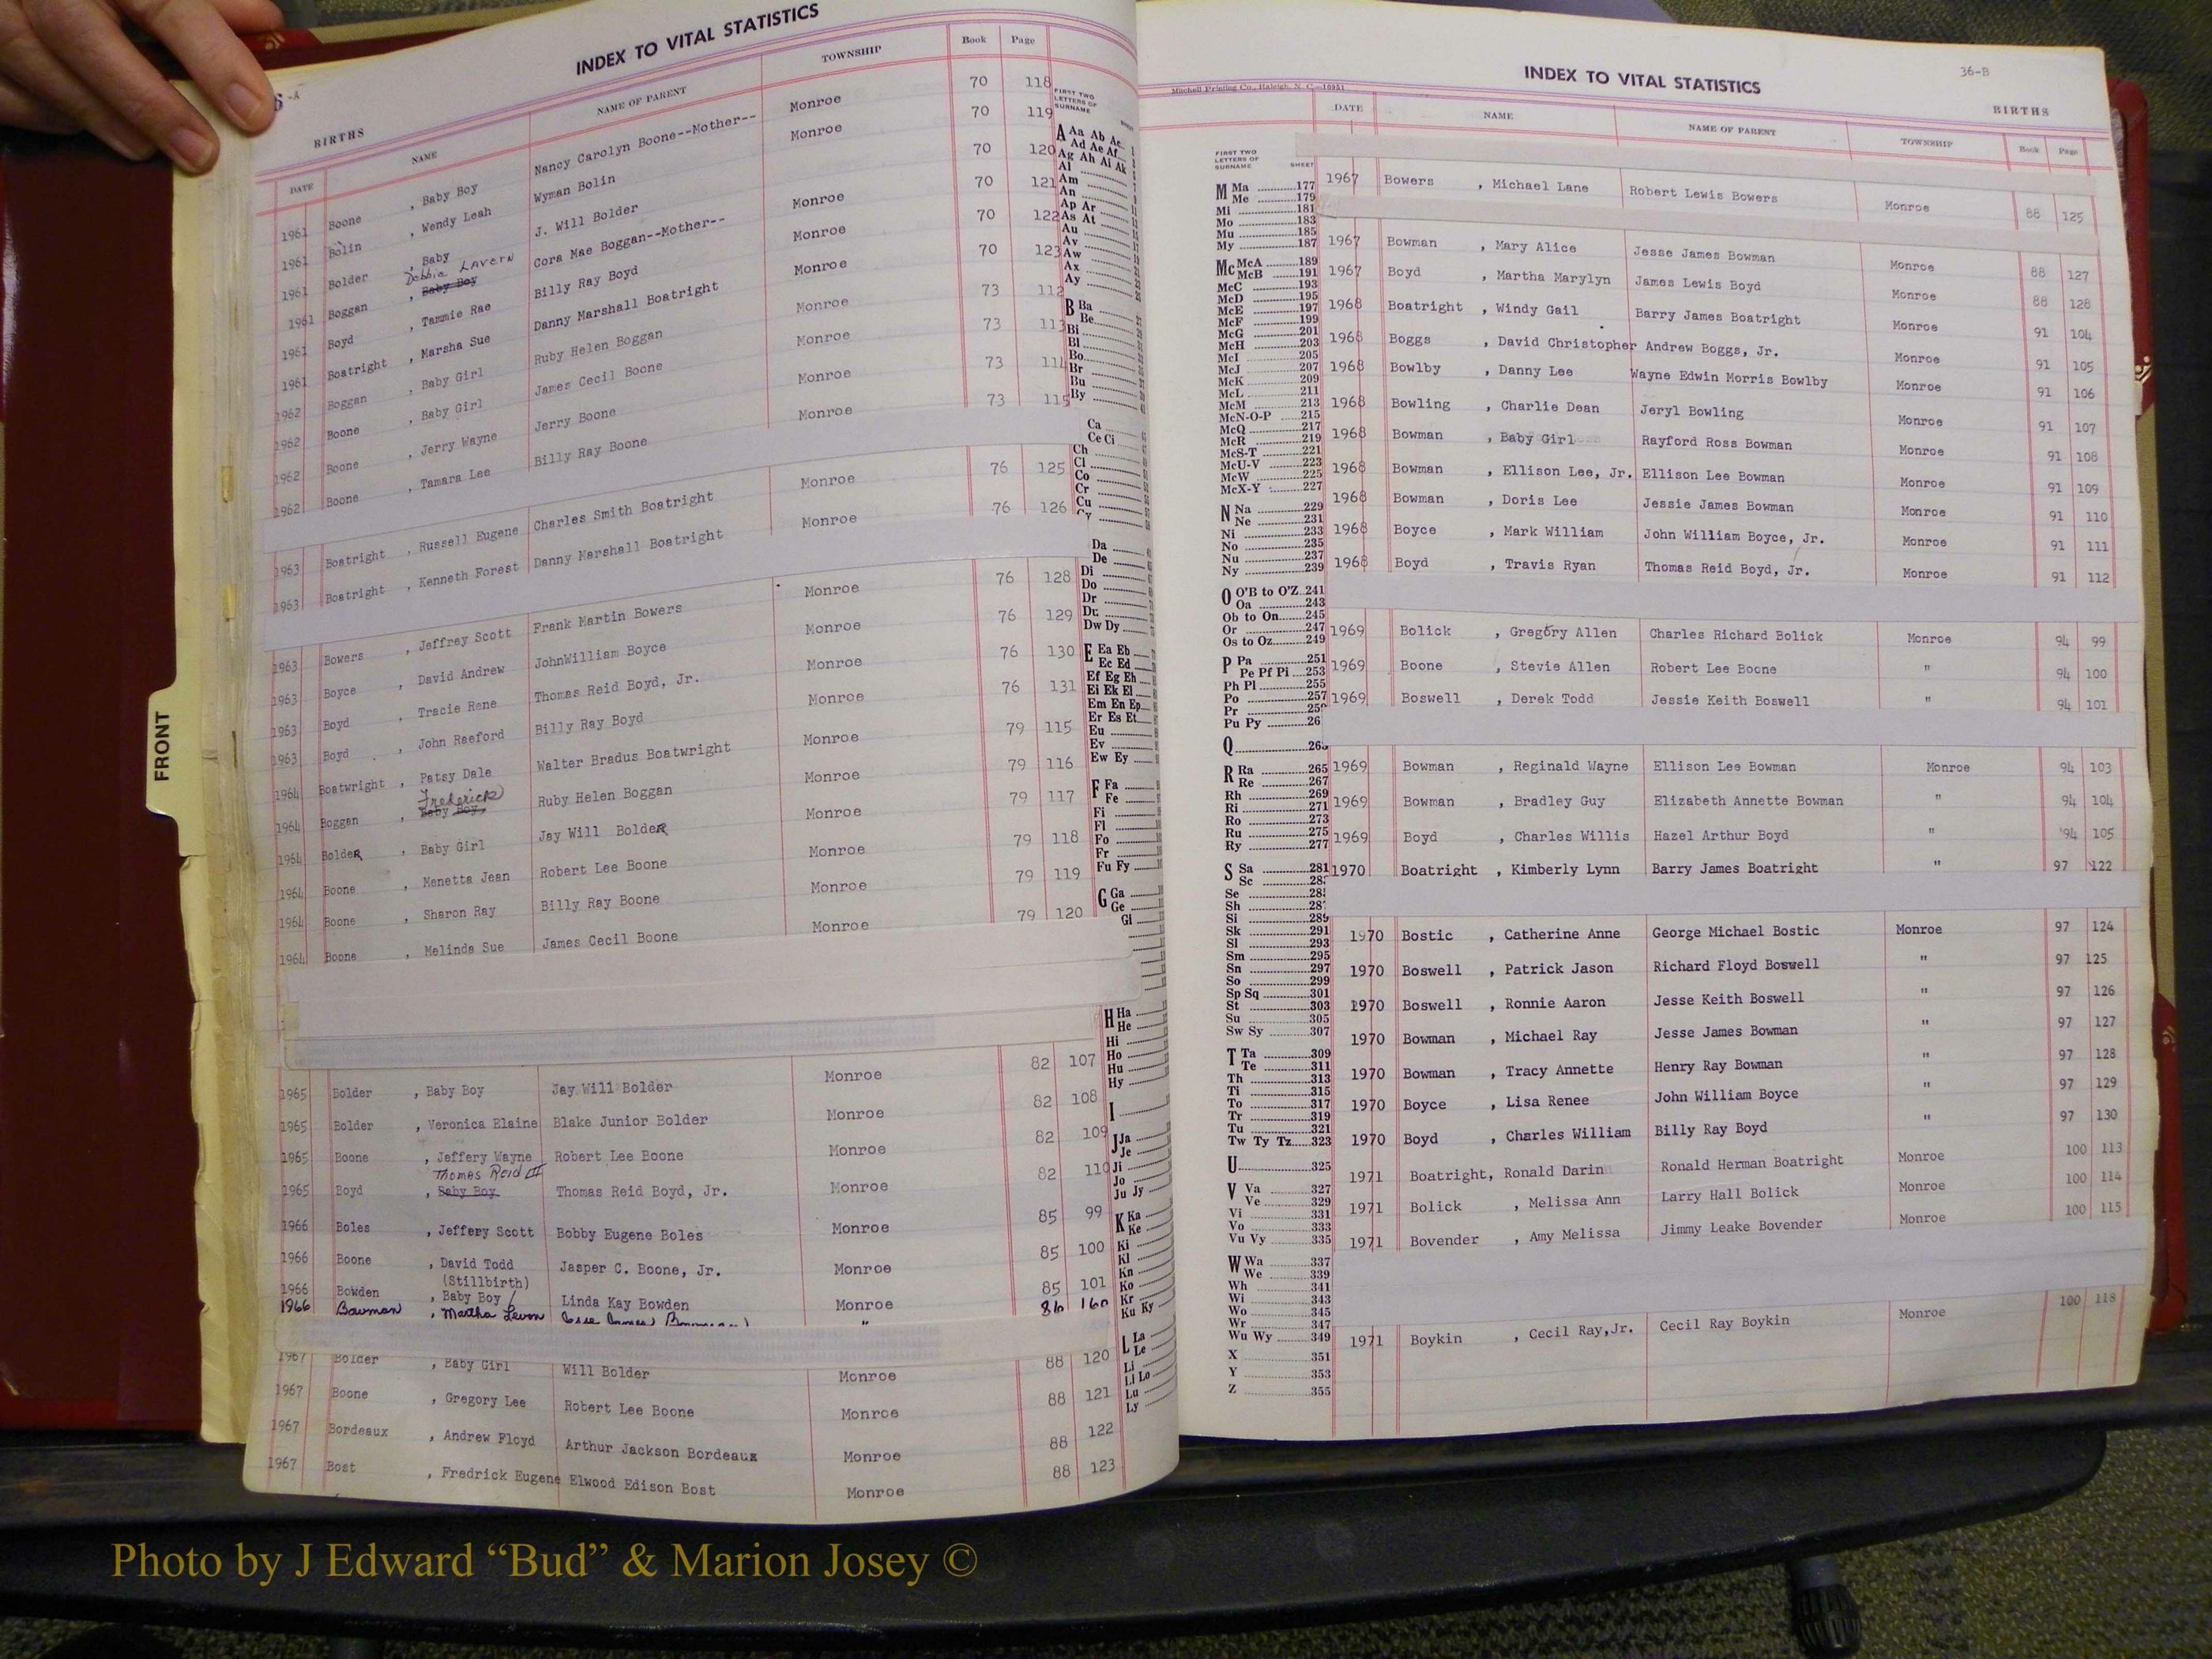 INDEX TO VITAL STATISTICS
BIRTHS
DATE NAME NAME OF PARENT TOWNSHIP Book Page
1961 Boone , Baby Boy Nancy Carolyn Boone--Mother-- Monroe 70 118
1961 Bolin , Wendy Leah Wyman Bolin Monroe 70 119
1961 Bolder , Baby J. Will Bolder 70 120
Debbie LAVERN
1961 Boggan , Baby Boy Cora Mae Boggan--Mother-- Monroe 70 121
1961 Boyd , Tammie Rae Billy Ray Boyd Monroe 70 122
1961 Boatright , Marsha Sue Danny Marshall Boatright Monroe 70 123
1962 Boggan , Baby Girl Ruby Helen Boggan Monroe 73 112
1962 Boone , Baby Girl James Cecil Boone Monroe 73 113
1962 Boone , Jerry Wayne Jerry Boone Monroe 73 114
1962 Boone , Tamara Lee Billy Ray Boone Monroe 73 115
1963 Boatright , Russell Eugene Charles Smith Boatright Monroe 76 125
1963 Boatright , Kenneth Forest Danny Marshall Boatright Monroe 76 126
1963 Bowers , Jeffrey Scott Frank Martin Bowers Monroe 76 128
1963 Boyce , David Andrew JohnWilliam Boyce Monroe 76 129
1963 Boyd , Tracie Rene Thomas Reid Boyd, Jr. Monroe 76 130
1963 Boyd , John Raeford Billy Ray Boyd Monroe 76 131
1964 Boatwright , Patsy Dale Walter Bradus Boatwright Monroe 79 115
Frederick
1964 Boggan , Baby Boy, Ruby Helen Boggan Monroe 79 116
1964 BoldeR , Baby Girl Jay Will BoldeR Monroe 79 117
1964 Boone , Menetta Jean Robert Lee Boone Monroe 79 118
1964 Boone , Sharon Ray Billy Ray Boone Monroe 79 119
1964 Boone , Melinda Sue James Cecil Boone Monroe 79 120
1965 Bolder , Baby Boy Jay Will Bolder Monroe 82 107
1965 Bolder , Veronica Elaine Blake Junior Bolder Monroe 82 108
1965 Boone , Jeffery Wayne Robert Lee Boone Monroe 82 109
Thomas Reid III
1965 Boyd , Baby Boy Thomas Reid Boyd, Jr. Monroe 82 110
1966 Boles , Jeffery Scott Bobby Eugene Boles Monroe 85 99
1966 Boone , David Todd Jasper C. Boone, Jr. Monroe 85 100
(Stillbirth)
1966 Bowden , Baby Boy Linda Kay Bowden Monroe 85 101
1966 Bowman , Martha Levon Jesse James Bowman " 86 160
1967 Bolder , Baby Girl Will Bolder Monroe 88 120
1967 Boone , Gregory Lee Robert Lee Boone Monroe 88 121
1967 Bordeaux , Andrew Floyd Arthur Jackson Bordeaux Monroe 88 122
1967 Bost , Fredrick Eugene Elwood Edison Bost Monroe 88 123
FRONT
FIRST TWO
LETTERS OF
SURNAME
A Aa Ab Ac
Ad Ae Af
Ag Ah Ai Ak
Al
Am
An
Ap Ar
As At
Au
Av
Aw
Ax
Ay
B Ba
Be
Bi
Bl
Bo
Br
Bu
By
Ca
Ce Ci
Ch
Cl
Co
Cr
Cu
Cy
Da
De
Di
Do
Dr
Du
Dw Dy
E Ea Eb
Ec Ed
Ef Eg Eh
Ei Ek El
Em En Ep
Er Es Et
Eu
Ev
Ew Ey
F Fa
Fe
Fi
Fl
Fo
Fr
Fu Fy
G Ga
Ge
Gi
H Ha
He
Hi
Ho
Hu
Hy
I
J Ja
Je
Ji
Jo
Ju Jy
K Ka
Ke
Ki
Kl
Kn
Ko
Kr
Ku Ky
L La
Le
Li
Ll Lo
Lu
Ly
INDEX TO VITAL STATISTICS
36-B
Mitchell Printing Co., Raleigh, N. C.—10951
BIRTHS
DATE NAME NAME OF PARENT TOWNSHIP Book Page
1967 Bowers , Michael Lane Robert Lewis Bowers Monroe 88 125
1967 Bowman , Mary Alice Jesse James Bowman Monroe 88 127
1967 Boyd , Martha Marylyn James Lewis Boyd Monroe 88 128
1968 Boatright , Windy Gail Barry James Boatright Monroe 91 104
1968 Boggs , David Christopher Andrew Boggs, Jr. Monroe 91 105
1968 Bowlby , Danny Lee Wayne Edwin Morris Bowlby Monroe 91 106
1968 Bowling , Charlie Dean Jeryl Bowling Monroe 91 107
1968 Bowman , Baby Girl Rayford Ross Bowman Monroe 91 108
1968 Bowman , Ellison Lee, Jr. Ellison Lee Bowman Monroe 91 109
1968 Bowman , Doris Lee Jessie James Bowman Monroe 91 110
1968 Boyce , Mark William John William Boyce, Jr. Monroe 91 111
1968 Boyd , Travis Ryan Thomas Reid Boyd, Jr. Monroe 91 112
1969 Bolick , Gregory Allen Charles Richard Bolick Monroe 94 99
1969 Boone , Stevie Allen Robert Lee Boone " 94 100
1969 Boswell , Derek Todd Jessie Keith Boswell " 94 101
1969 Bowman , Reginald Wayne Ellison Lee Bowman Monroe 94 103
1969 Bowman , Bradley Guy Elizabeth Annette Bowman " 94 104
1969 Boyd , Charles Willis Hazel Arthur Boyd " 94 105
1970 Boatright , Kimberly Lynn Barry James Boatright " 97 122
1970 Bostic , Catherine Anne George Michael Bostic Monroe 97 124
1970 Boswell , Patrick Jason Richard Floyd Boswell " 97 125
1970 Boswell , Ronnie Aaron Jesse Keith Boswell " 97 126
1970 Bowman , Michael Ray Jesse James Bowman " 97 127
1970 Bowman , Tracy Annette Henry Ray Bowman " 97 128
1970 Boyce , Lisa Renee John William Boyce " 97 129
1970 Boyd , Charles William Billy Ray Boyd " 97 130
1971 Boatright, Ronald Darin Ronald Herman Boatright Monroe 100 113
1971 Bolick , Melissa Ann Larry Hall Bolick Monroe 100 114
1971 Bovender , Amy Melissa Jimmy Leake Bovender Monroe 100 115
1971 Boykin , Cecil Ray,Jr. Cecil Ray Boykin Monroe 100 118
FIRST TWO
LETTERS OF
SURNAME SHEET
M Ma 177
Me 179
Mi 181
Mo 183
Mu 185
My 187
Mc McA 189
McB 191
McC 193
McD 195
McE 197
McF 199
McG 201
McH 203
McI 205
McJ 207
McK 209
McL 211
McM 213
McN-O-P 215
McQ 217
McR 219
McS-T 221
McU-V 223
McW 225
McX-Y 227
N Na 229
Ne 231
Ni 233
No 235
Nu 237
Ny 239
O O'B to O'Z 241
Oa 243
Ob to On 245
Or 247
Os to Oz 249
P Pa 251
Pe Pf Pi 253
Ph Pl 255
Po 257
Pr
Pu Py
Q
R Ra 265
Re 267
Rh 269
Ri 271
Ro 273
Ru 275
Ry 277
S Sa 281
Sc
Se
Sh
Si 289
Sk 291
Sl 293
Sm 295
Sn 297
So 299
Sp Sq 301
St 303
Su 305
Sw Sy 307
T Ta 309
Te 311
Th 313
Ti 315
To 317
Tr 319
Tu 321
Tw Ty Tz 323
U 325
V Va 327
Ve 329
Vi 331
Vo 333
Vu Vy 335
W Wa 337
We 339
Wh 341
Wi 343
Wo 345
Wr 347
Wu Wy 349
X 351
Y 353
Z 355
Photo by J Edward “Bud” & Marion Josey ©